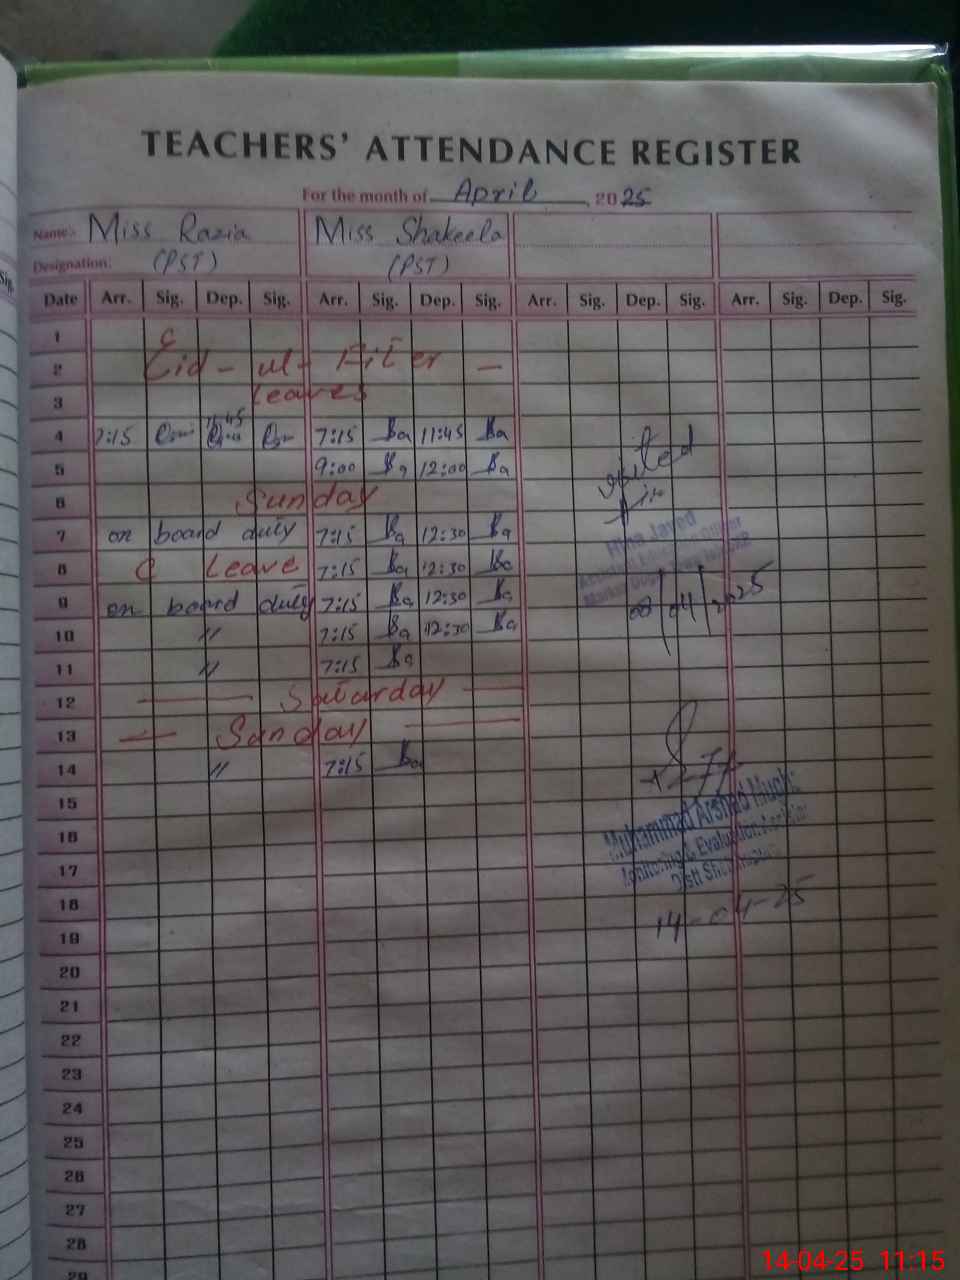 TEACHERS' ATTENDANCE REGISTER
For the month of April, 2025
Name:- Miss Razia Miss Shakeela
Designation: (PST) (PST)
Sig.
Date Arr. Sig. Dep. Sig. Arr. Sig. Dep. Sig. Arr. Sig. Dep. Sig. Arr. Sig. Dep. Sig.
1
2 Eid-ul-Fiter -
3 Leaves
4 7:15 11:45 7:15 11:45
5 9:00 12:00
6 Sunday
7 on board duly 7:15 12:30
8 C Leave 7:15 12:30
9 on board duty 7:15 12:30
10 " 7:15 12:30
11 " 7:15
12 Saturday
13 Sunday
14 " 7:15
15
16
17
18
19
20
21
22
23
24
25
26
27
28
29
visited
Hina Javed
08/04/2025
Muhammad Arshad
Monitoring & Evaluation
Distt
14-04-25
14-04-25 11:15